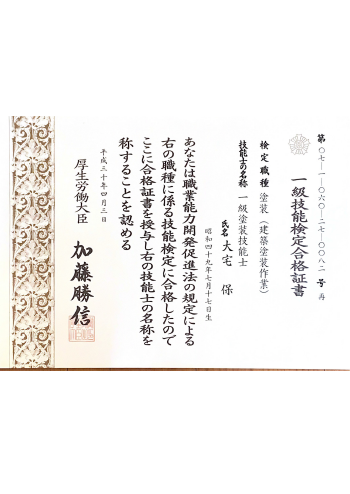 第〇七一-一-〇六〇-二七-〇〇八二号 再
一級技能検定合格証書
検定職種 塗装(建築塗装作業)
技能士の名称 一級塗装技能士
氏名 大宅 保
昭和四十九年七月十七日生
あなたは職業能力開発促進法の規定による
右の職種に係る技能検定に合格したので
ここに合格証書を授与し右の技能士の名称を
称することを認める
平成三十年四月三日
厚生労働大臣 加藤勝信